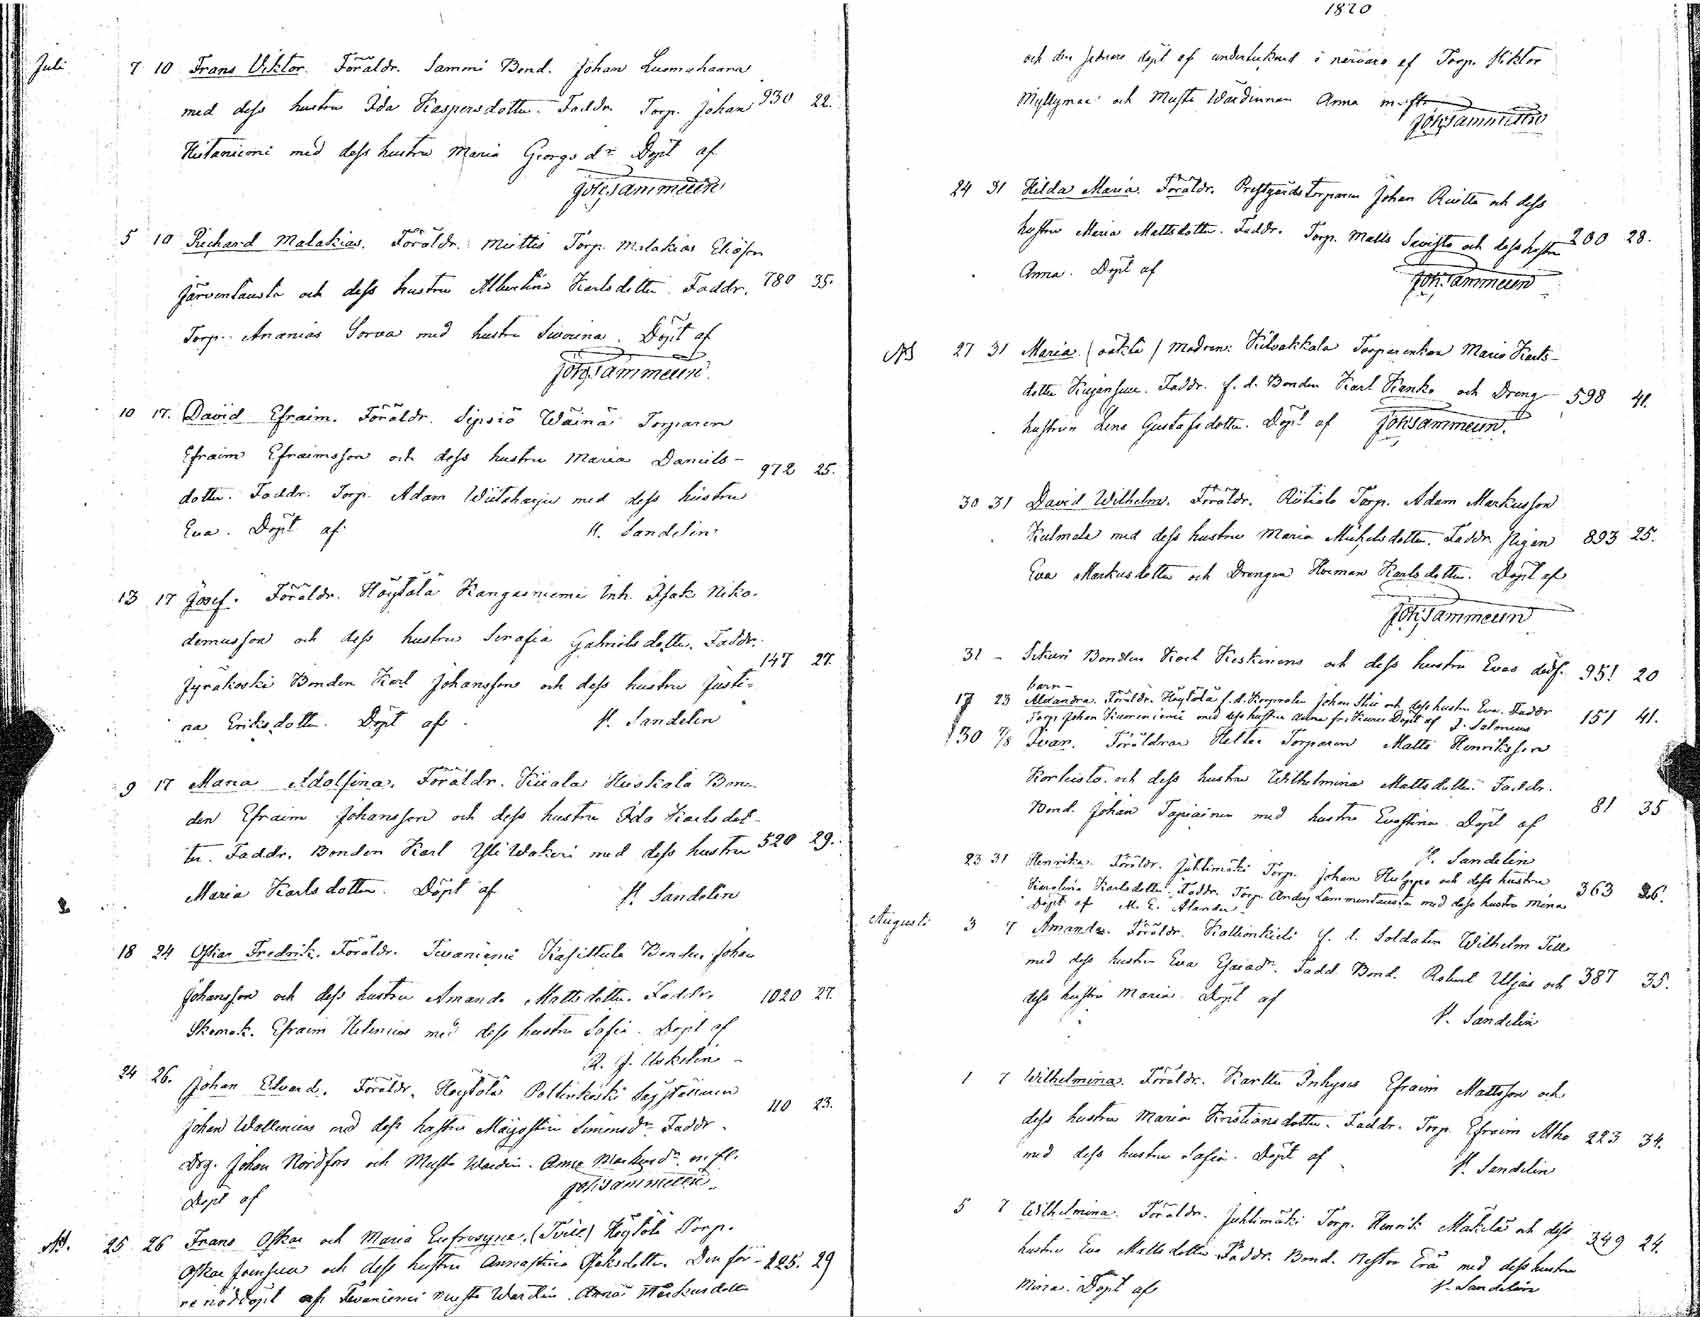 Juli 7 10 Frans Viktor. Föräldr. Sammi Bond. Johan Luomahaara
med dess hustru Ida Kaspersdotter. Faddr. Torp. Johan 930 22.
Hietaniemi med dess hustru Maria Georgs dr. Döpt af
Joh. Sammeun
5 10 Richard Malakias. Föräldr. Torp. Malakias Eliasson
Järventausta och dess hustru Albertina Karlsdotter. Faddr. 780 35.
Torp. Ananias Sorva med hustru Severina. Döpt af
Joh. Sammeun.
10 17. David Efraim. Föräldr. Sipsiö Wäinä Torparen
Efraim Efraimsson och dess hustru Maria Daniels- 972 25.
dotter. Faddr. Torp. Adam Wiitaharju med dess hustru
Eva. Döpt af K. Sandelin
13 17 Josef. Föräldr. Höytölä Kangasniemi Inh. Isak Niko-
demusson och dess hustru Serafia Gabrielsdotter. Faddr.
147 27.
Jyräkoski Bonden Karl Johansson och dess hustru Justi-
na Eriksdotter. Döpt af K. Sandelin
9 17 Maria Adolfina. Föräldr. Kiiala Heiskala Bon-
den Efraim Johansson och dess hustru Ida Karlsdot-
ter. Faddr. Bonden Karl Yli Wakeri med dess hustru 520 29.
Maria Karlsdotter. Döpt af K. Sandelin
18 24 Oskar Fredrik. Föräldr. Tevaniemi Bonden Johan
Johansson och dess hustru Amanda Mattsdotter. Faddr. 1020 27.
Skomak. Efraim Helenius med dess hustru Sofia. Döpt af
K. J. Uskelin
24 26. Johan Edvard. Föräldr. Höytölä
Johan Wallenius med dess hustru Majastina Simonsdr. Faddr. 110 23.
Drg. Johan Nordfors och Mußte Wardin. Anna Markusdr. m. fl.
Döpt af Joh. Sammeun
NB. 25 26 Frans Oskar och Maria Eufrosyne. (Tvill) Höytölä Torp.
Oskar Joensuu och dess hustru Annastina Isaksdotter. Den för- 225. 29
re nöddöpt af Tevaniemi Mußte Wardin Anna Markusdotter
1820
och den senare döpt af undertecknad i närvaro af Torp. Viktor
Myllymaa och Mußte Wärdinnan Anna m. fl.
Joh. Sammeun
24 31 Hilda Maria. Föräldr. Prestgårds Torparen Johan och dess
hustru Maria Mattsdotter. Faddr. Torp. Matts och dess hustru 200 28.
Anna. Döpt af Joh. Sammeun
NB 27 31 Maria. (oäkta) Modren: Kilvakkala Torparenkan Maria Karls-
dotter Faddr. f. d. Bonden Karl Kanko och Dreng 598 41.
hustrun Lena Gustafsdotter. Döpt af Joh. Sammeun.
30 31 David Wilhelm. Föräldr. Riitiala Torp. Adam Markusson
Kulmala med dess hustru Maria Mikelsdotter. Faddr. Pigan 893 25.
Eva Markusdotter och Drengen Herman Karlsdotter. Döpt af
Joh. Sammeun
31 - Sikuri Bonden Karl Keskinens och dess hustru Evas dödf. 951 20
barn-
17 23 Alexandra. Föräldr. Höytölä f. d. Korporalen Johan och dess hustru Eva. Faddr
Torp. Johan med dess hustru Döpt af J. Salonius 151 41.
30 7/8 Ivar. Föräldrar Heltti Torparen Matts Henriksson
Korkiste och dess hustru Wilhelmina Mattsdotter. Faddr.
Bond. Johan Tapiainen med hustru Evastina. Döpt af 81 35
K. Sandelin
23 31 Henrika. Föräldr. Juhtimäki Torp. Johan och dess hustru
Karolina Karlsdotter. Faddr. Torp. Anders Lammentausta med dess hustru Mina 363 26.
Döpt af M. E. Alander.
Augusti 3 7 Amanda. Föräldr. Kallionkieli f. d. Soldaten Wilhelm Tell
med dess hustru Eva Esaiadr. Fadd. Bond. Robert Uljas och 387 35.
dess hustru Maria. Döpt af
K. Sandelin
1 7 Wilhelmina. Föräldr. Karttu Inhyses Efraim Mattsson och
dess hustru Maria Kristiansdotter. Faddr. Torp. Efraim Alho 223 34.
med dess hustru Sofia. Döpt af K. Sandelin
5 7 Wilhelmina. Föräldr. Juhtimäki Torp. Henrik Mäkelä och dess
hustru Eva Mattsdotter. Faddr. Bond. Nestor Erä med dess hustru 349 24.
Mina. Döpt af K. Sandelin